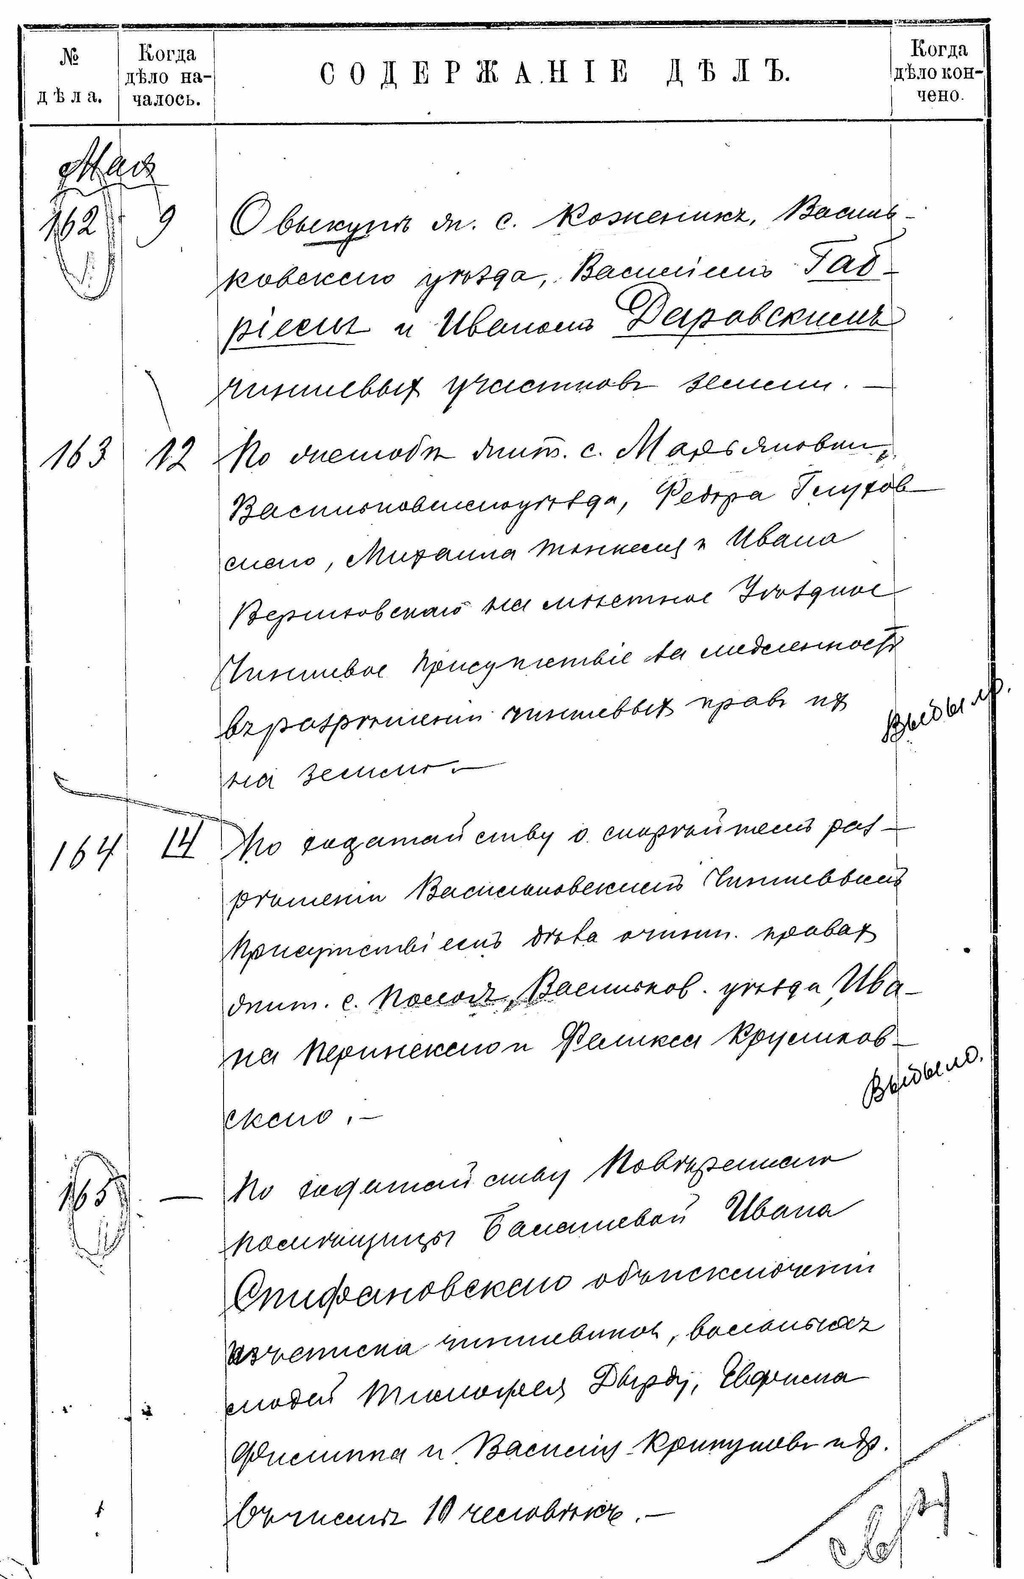 № дѣла.
Когда дѣло началось.
СОДЕРЖАНІЕ ДѢЛЪ.
Когда дѣло кончено.
Мая
162 9 О выкупѣ ж. с. Коженикъ, Василь-
ковскаго уѣзда, Василіемъ Габ-
ріелы и Иваномъ Даровскимъ
чиншевыхъ участковъ земли. —
163 12 По жалобѣ жит. с. Марьяновки,
Васильковскаго уѣзда, Федора Глухов-
скаго, Михаила и Ивана
Вержковскаго на мѣстное Уѣздное
Чиншевое Присутствіе за медленность
въ разрѣшеніи чиншевыхъ правъ ихъ
на землю. —
Выбыло.
164 14 По ходатайству о скорѣйшемъ раз-
рѣшеніи Васильковскимъ Чиншевымъ
Присутствіемъ дѣла о чинш. правахъ
жит. с. Пологъ, Васильков. уѣзда, Ива-
на и Феликса Круликов-
скаго. —
Выбыло.
165 — По ходатайству Повѣреннаго
помѣщицы Балашевой Ивана
Епифановскаго объ исключеніи
изъ списка чиншевиковъ, вольныхъ
людей Тимофея Дырды, Евфима
Филиппа и Василія Крикуновъ и др.
въ числѣ 10 человѣкъ. —